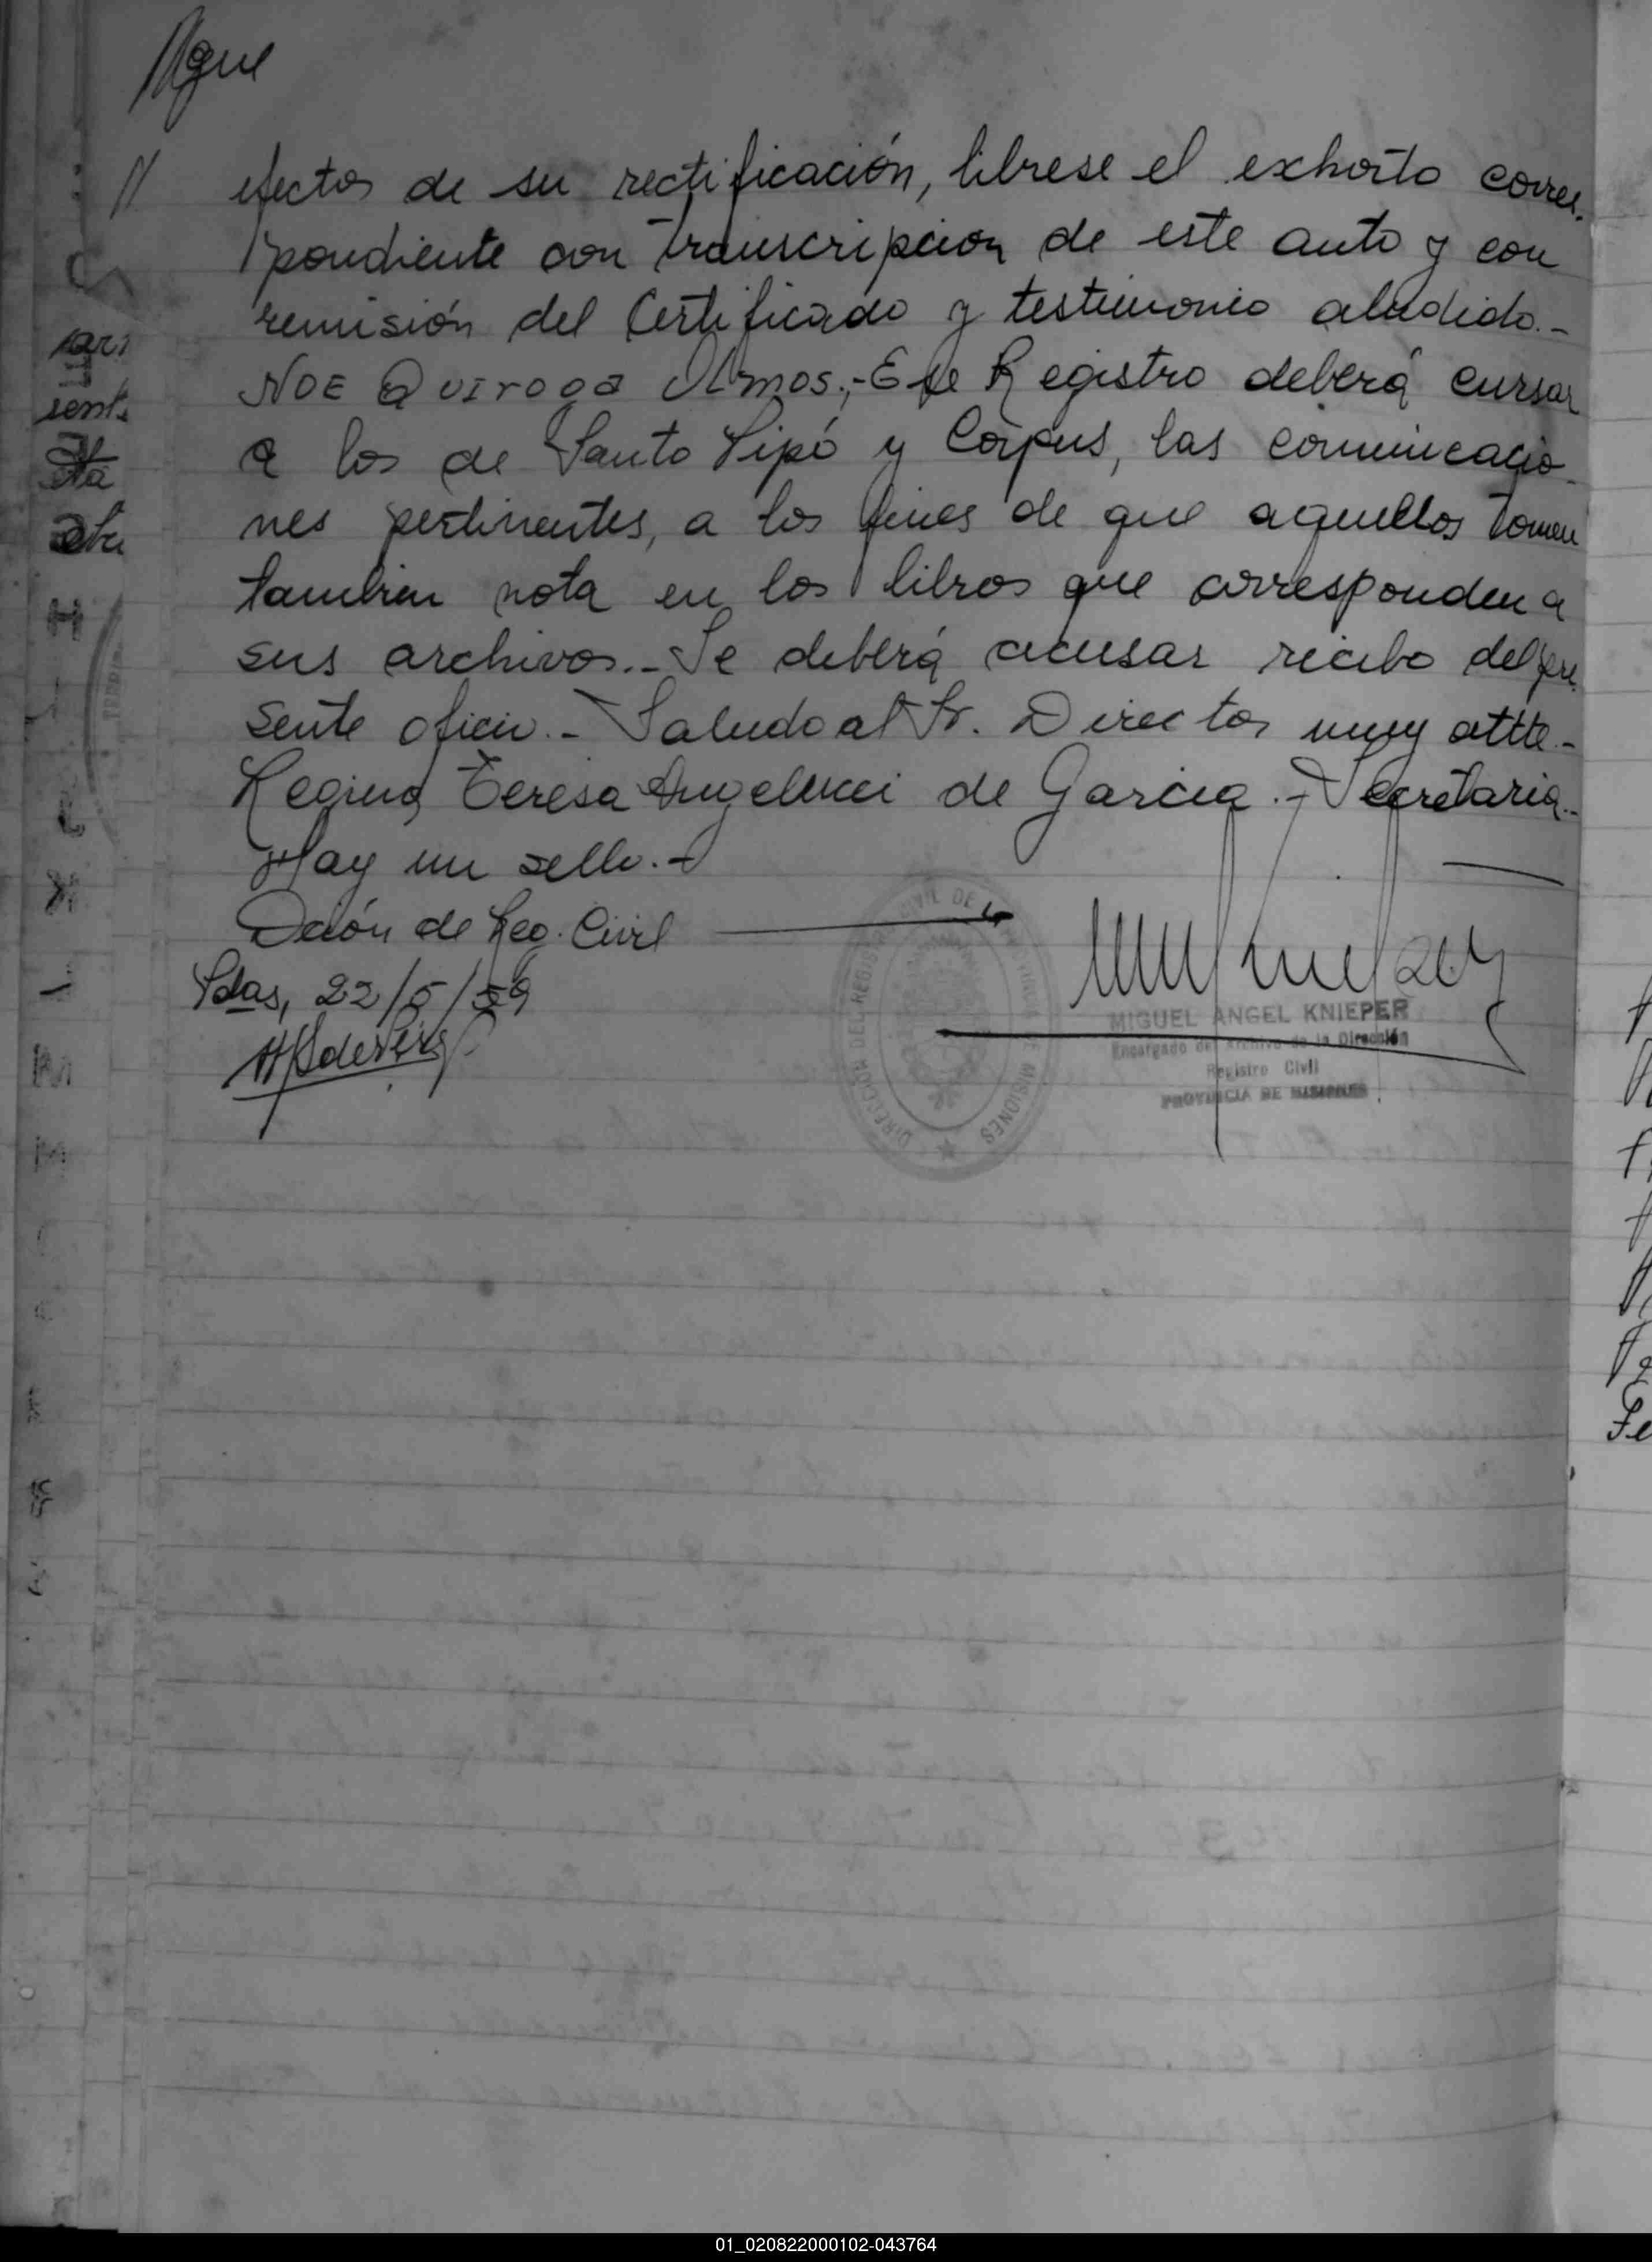 Sigue
// efectos de su rectificación, librese el exhorto corres-
pondiente con transcripcion de este auto y con
remisión del Certificado y testimonio aludido.-
NOE QUIROGA Olmos.- Ese Registro deberá cursar
a los de Santo Pipó y Corpus, las comunicacio-
nes pertinentes, a los fines de que aquellos tomen
tambien nota en los libros que corresponden a
sus archivos.- Se deberá acusar recibo del pre-
sente oficio.- Saludo al Sr. Director muy attte.-
Regina Teresa Angelucci de Garcia.- Secretaria.-
Hay un sello.-
Dción de Reg. Civil
Pdas, 22/5/59
DIRECCION DEL REGISTRO CIVIL DE LA PROVINCIA DE MISIONES
MIGUEL ANGEL KNIEPER
Encargado del Archivo de la Dirección
Registro Civil
PROVINCIA DE MISIONES
01_020822000102-043764